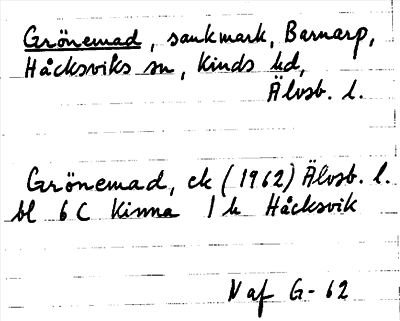 Grönemad, sankmark, Barnarp,
Håcksviks sn, Kinds hd,
Älvsb. l.
Grönemad, ek (1962) Älvsb. l.
bl 6 C Kinna 1 h Håcksvik
N af G-62